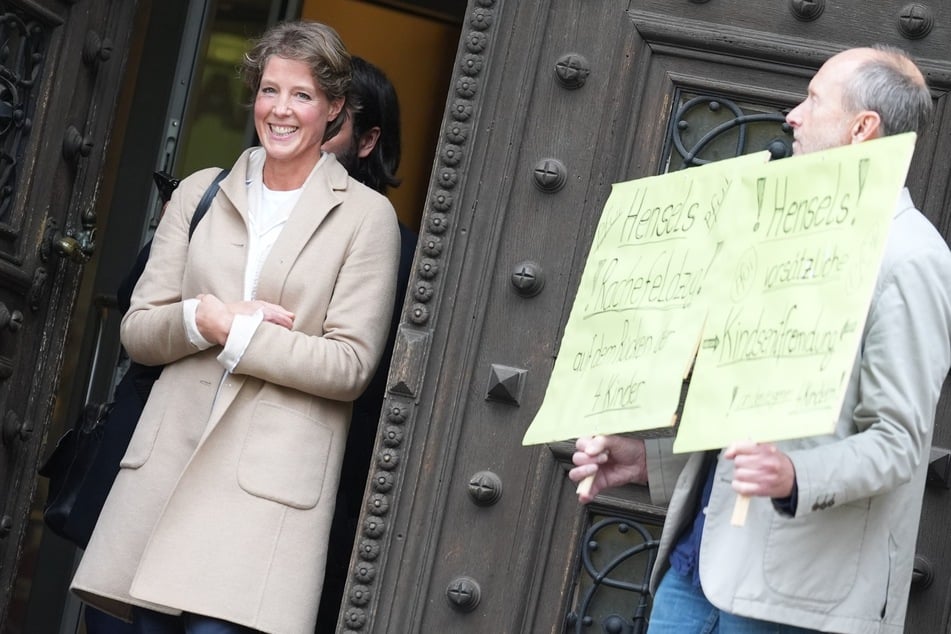 Hensels
"Rachefeldzug"
auf dem Rücken der
4 Kinder
! Hensels !
vorsätzliche
Kindsentfremdung
4 Kindern!